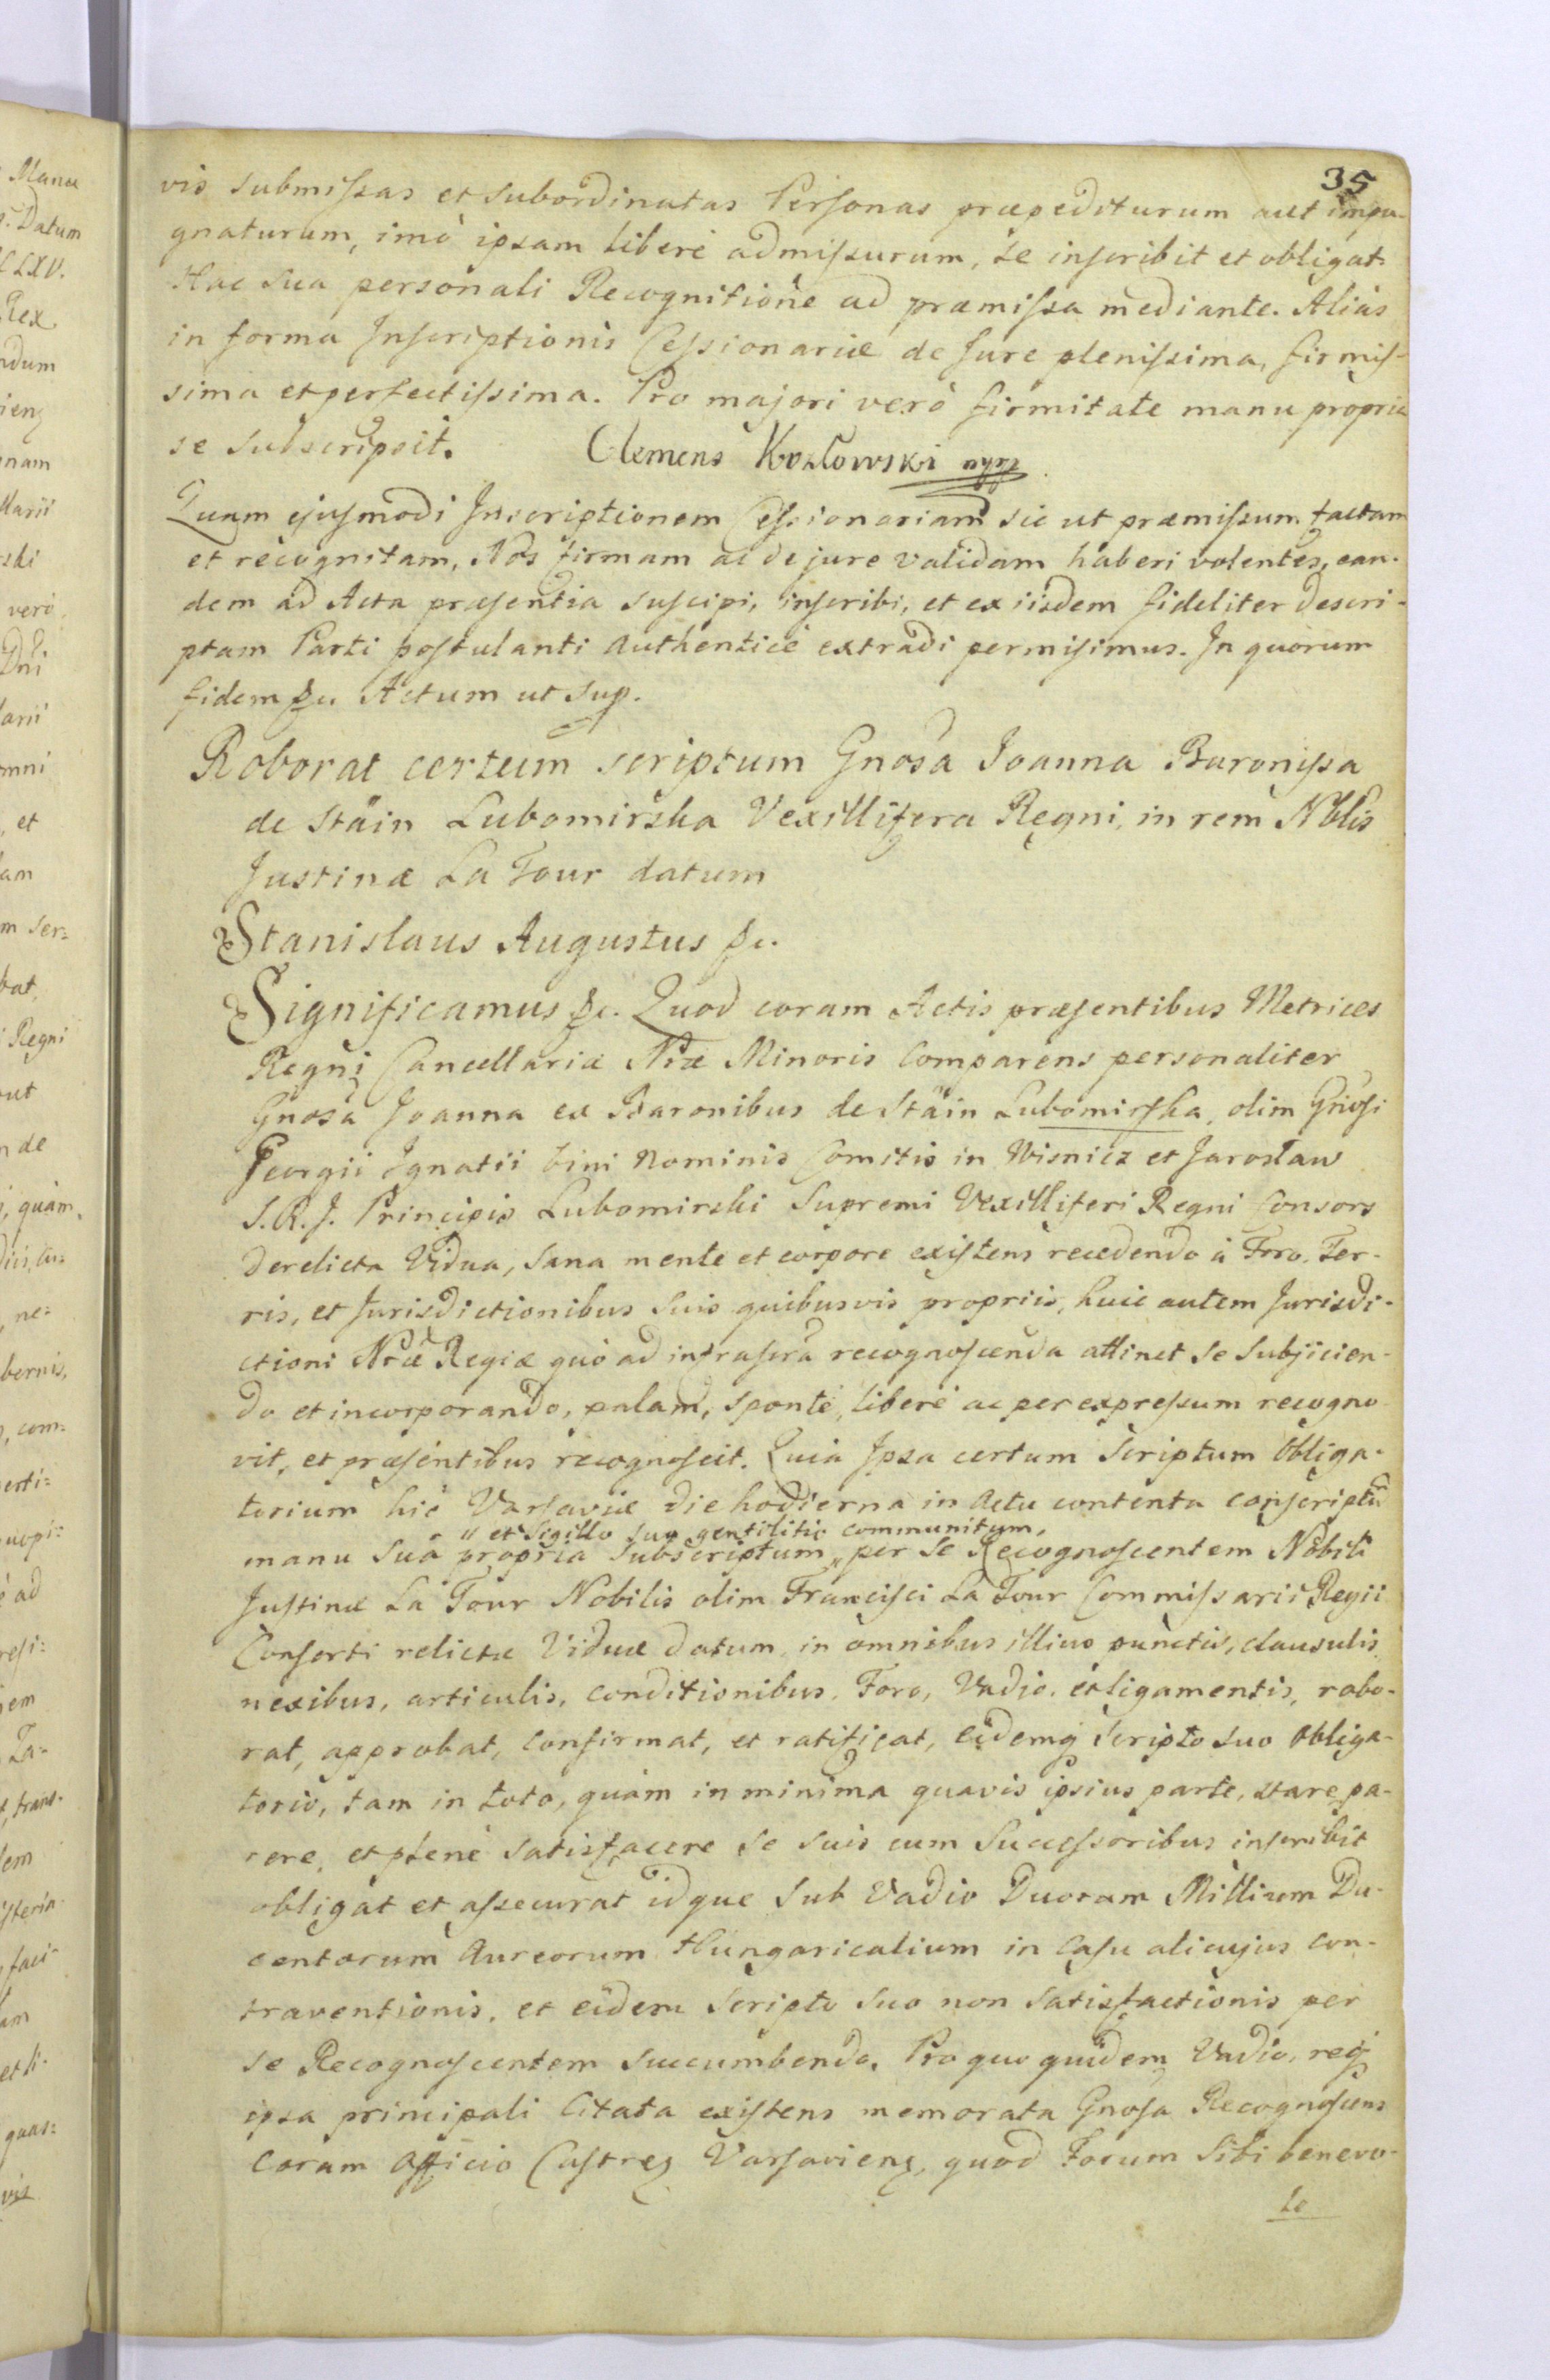 35
vis submissas et subordinatas Personas præpediturum aut impu-
gnaturum, imò ipsam liberè admissurum, se inscribit et obligat
Hac sua personali Recognitione ad præmissa mediante. Aliàs
in forma Inscriptionis Cessionariæ de Jure plenissima, firmis-
sima et perfectissima. Pro majori verò firmitate manu propria
se subscripsit. Clemens Kozłowski mpp
Quam ejusmodi Inscriptionem Cessionariam sic ut præmissum factam
et recognitam, Nos firmam ac de jure validam haberi volentes, ean-
dem ad Acta præsentia suscipi, inscribi, et ex iisdem fideliter descri-
ptam Parti postulanti authenticè extradi permisimus. In quorum
fidem &c. Actum ut sup.
Roborat certum scriptum Gnosa Joanna Baronissa
de Stäin Lubomirska Vexillifera Regni, in rem Nblis
Justinæ La Tour datum
Stanislaus Augustus &c.
Significamus &c. Quod coram Actis præsentibus Metrices
Regni Cancellariæ Nræ Minoris Comparens personaliter
Gnosa Joanna ex Baronibus de Stäin Lubomirska, olim Gnosi
Georgii Ignatii bini Nominis Comitis in Wisnicz et Jarosław
S. R. J. Principis Lubomirski Supremi Vexilliferi Regni Consors
derelicta Vidua, sana mente et corpore existens recedendo à Foro, Ter-
ris, et Jurisdictionibus suis quibusvis propriis, huic autem Jurisdi-
ctioni Nræ Regiæ quò ad infrascra recognoscenda attinet se subjicien-
do et incorporando, palam, spontè, liberè ac per expressum recogno
vit, et præsentibus recognoscit. Quia Ipsa certum Scriptum Obliga-
torium hic Varsaviæ die hodierna in Actu contenta conscriptu
" et Sigillo suo gentilitio communitum,
manu suâ propria subscriptum " per se Recognoscentem Nobili
Justinæ La Tour Nobilis olim Francisci La Tour Commissarii Regii
Conserti relictæ Viduæ datum, in omnibus illius punctis, clausulis,
nexibus, articulis, conditionibus, Foro, Vadio, et ligamentis, robo-
rat, approbat, confirmat, et ratificat, eidemq scripto suo obliga-
torio, tam in toto, quàm in minima quavis ipsius parte, stare, pa-
rere, et plenè satisfacere se suis cum Successoribus inscribit
obligat et assecurat idque sub Vadio Duorum Millium Du-
centorum Aureorum Hungaricalium in Casu alicujus con-
traventionis, et eidem scripto suo non satisfactionis per
se Recognoscentem succumbendo. Pro quo quidem Vadio, req
ipsa principali Citata existens memorata Gnosa Recognoscens
Coram Officio Castren Varsavien, quod Forum Sibi benevo-
le